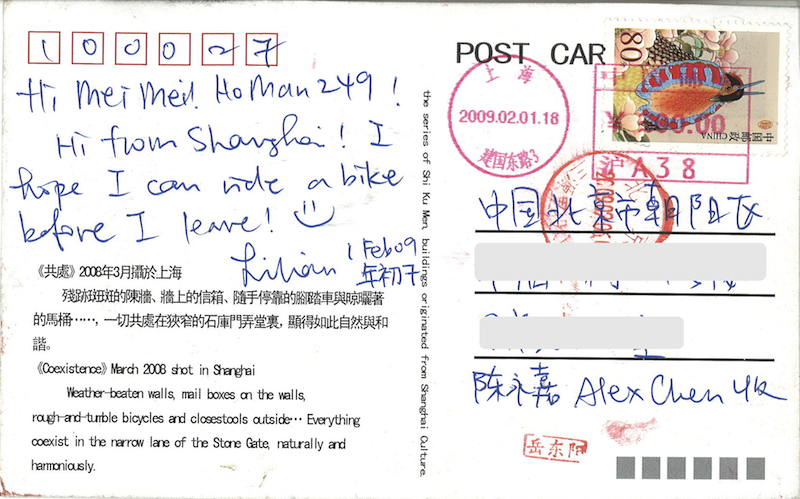 1 0 0 0 2 7
Hi Mei Mei! HoMan 249!
Hi from Shanghai! I
hope I can ride a bike
before I leave!
Lilian 1 Feb 09
年初七
《共處》2008年3月攝於上海
殘跡斑斑的陳牆、牆上的信箱、隨手停靠的腳踏車與晾曬著
的馬桶……，一切共處在狹窄的石庫門弄堂裏，顯得如此自然與和
諧。
《Coexistence》March 2008 shot in Shanghai
Weather-beaten walls, mail boxes on the walls,
rough-and-tumble bicycles and closestools outside… Everything
coexist in the narrow lane of the Stone Gate, naturally and
harmoniously.
the series of Shi Ku Men, buildings originated from Shanghai Culture.
POST CAR
80分
中国邮政 CHINA
上海
2009.02.01.18
建国东路3
沪 A 38
中国北京市朝阳区
陈永嘉 Alex Chen 收
岳东阳